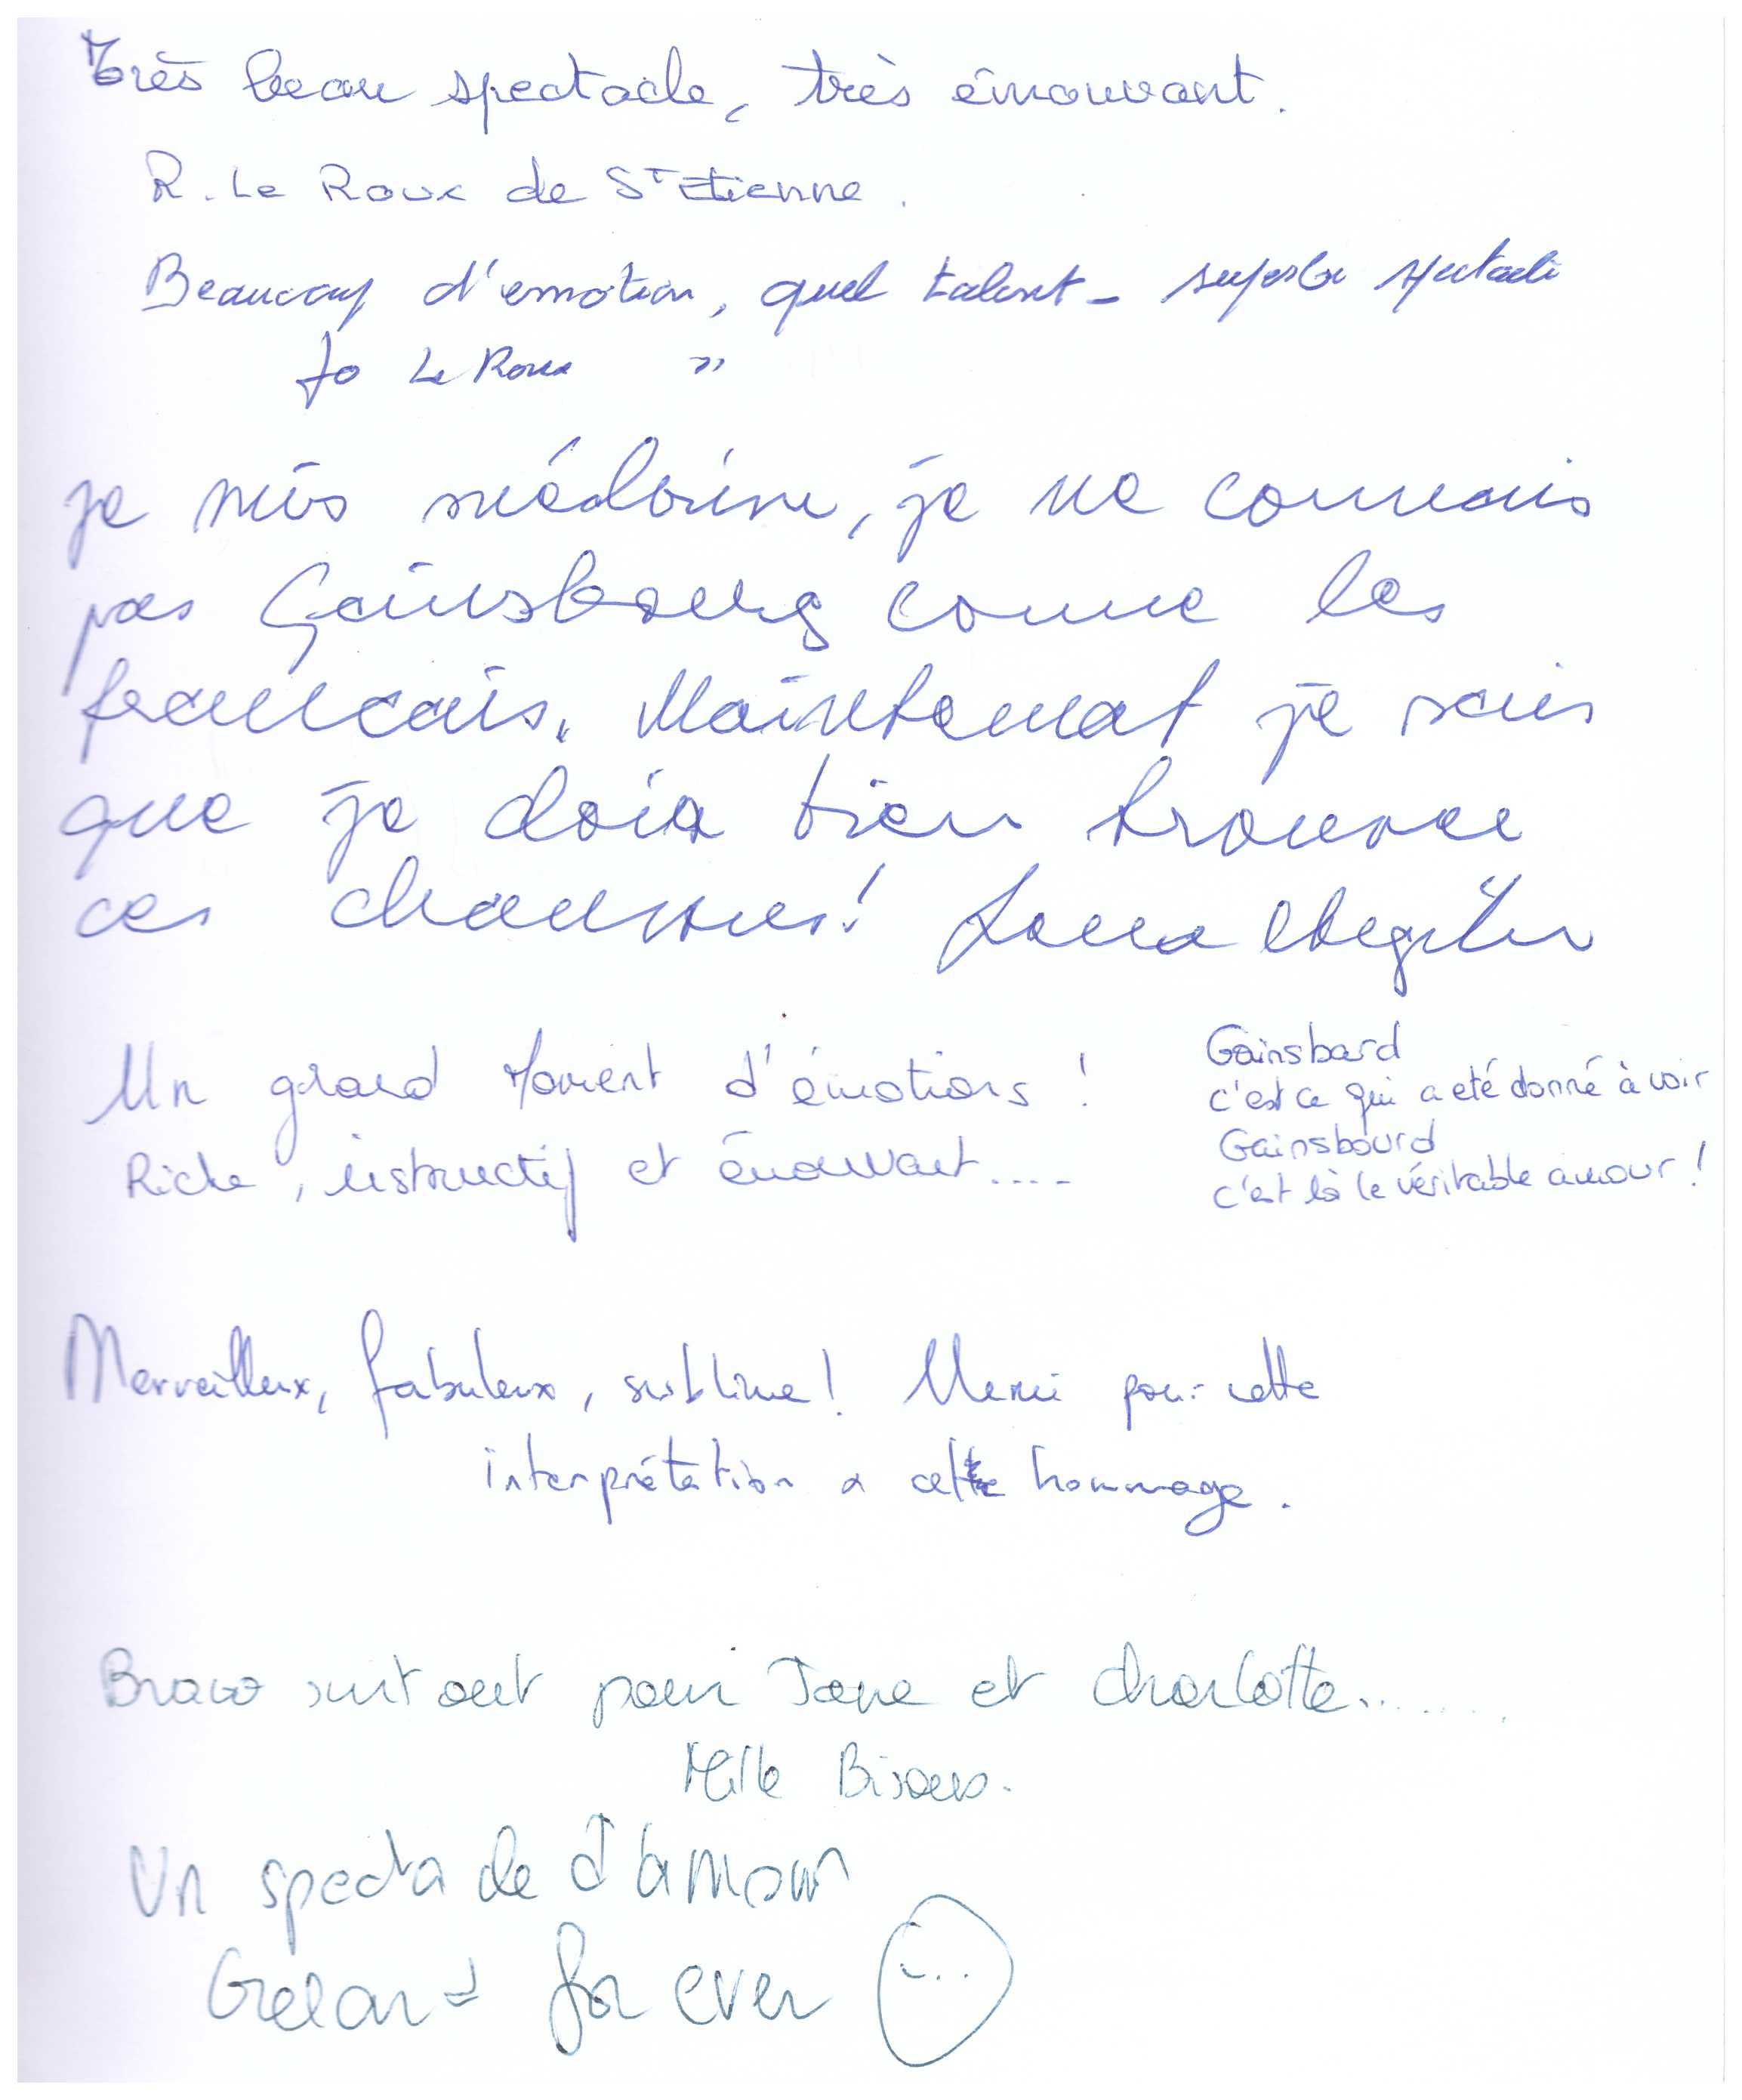 Très beau spectacle, très émouvant.
R. Le Roux de St Etienne.
Beaucoup d'emotion, quel talent - superbe spectacle
Jo Le Roux "
je suis je ne connais
pas Gainsbourg comme les
francais. Maintenat je sais
que je dois bien trouver
ces chansons!
Un grand Moment d'émotions !
Riche, instructif et émouvant....
Gainsbard
c'est ce qui a eté donné à voir
Gainsbourd
c'est là le véritable amour !
Merveilleux, fabuleux, sublime! Merci pour cette
interprétation a cette hommage.
Bravo surtout pour Jane et Charlotte.......
Mille Bisous.
Un spectacle d'amour
for ever